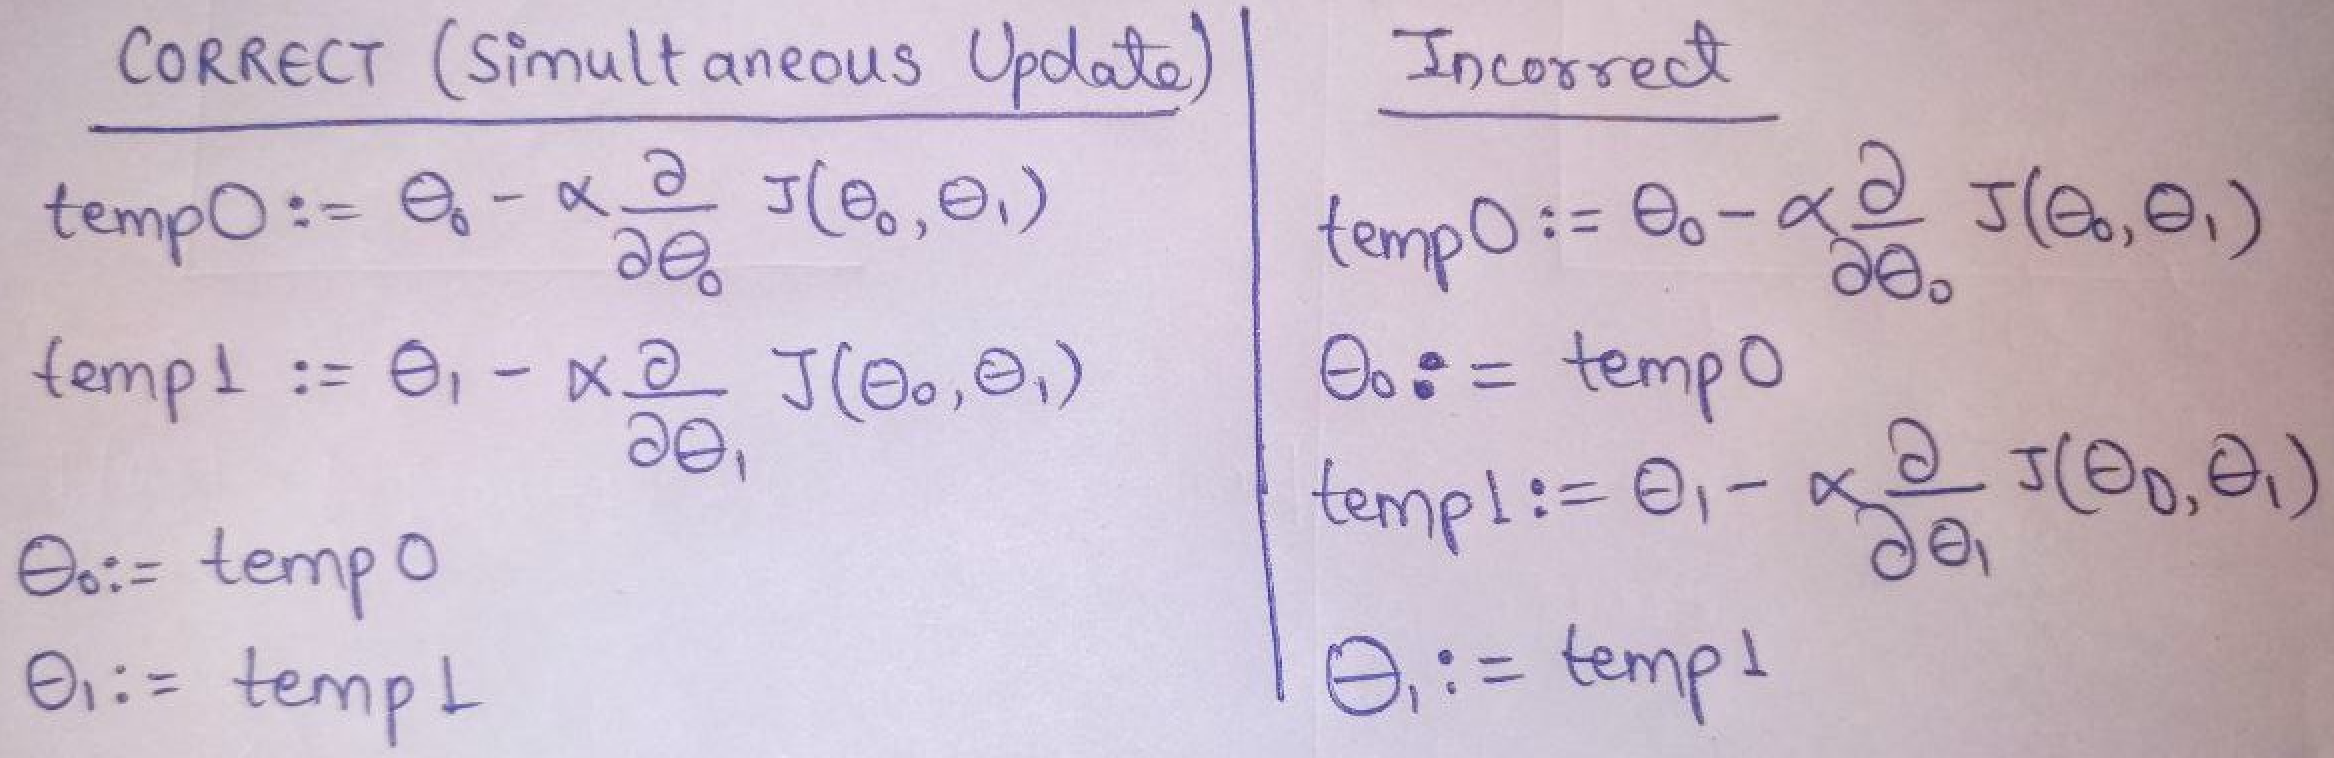 CORRECT (Simultaneous Update)
temp0 := θ₀ - α ∂/∂θ₀ J(θ₀, θ₁)
temp1 := θ₁ - α ∂/∂θ₁ J(θ₀, θ₁)
θ₀ := temp0
θ₁ := temp1
Incorrect
temp0 := θ₀ - α ∂/∂θ₀ J(θ₀, θ₁)
θ₀ := temp0
temp1 := θ₁ - α ∂/∂θ₁ J(θ₀, θ₁)
θ₁ := temp1